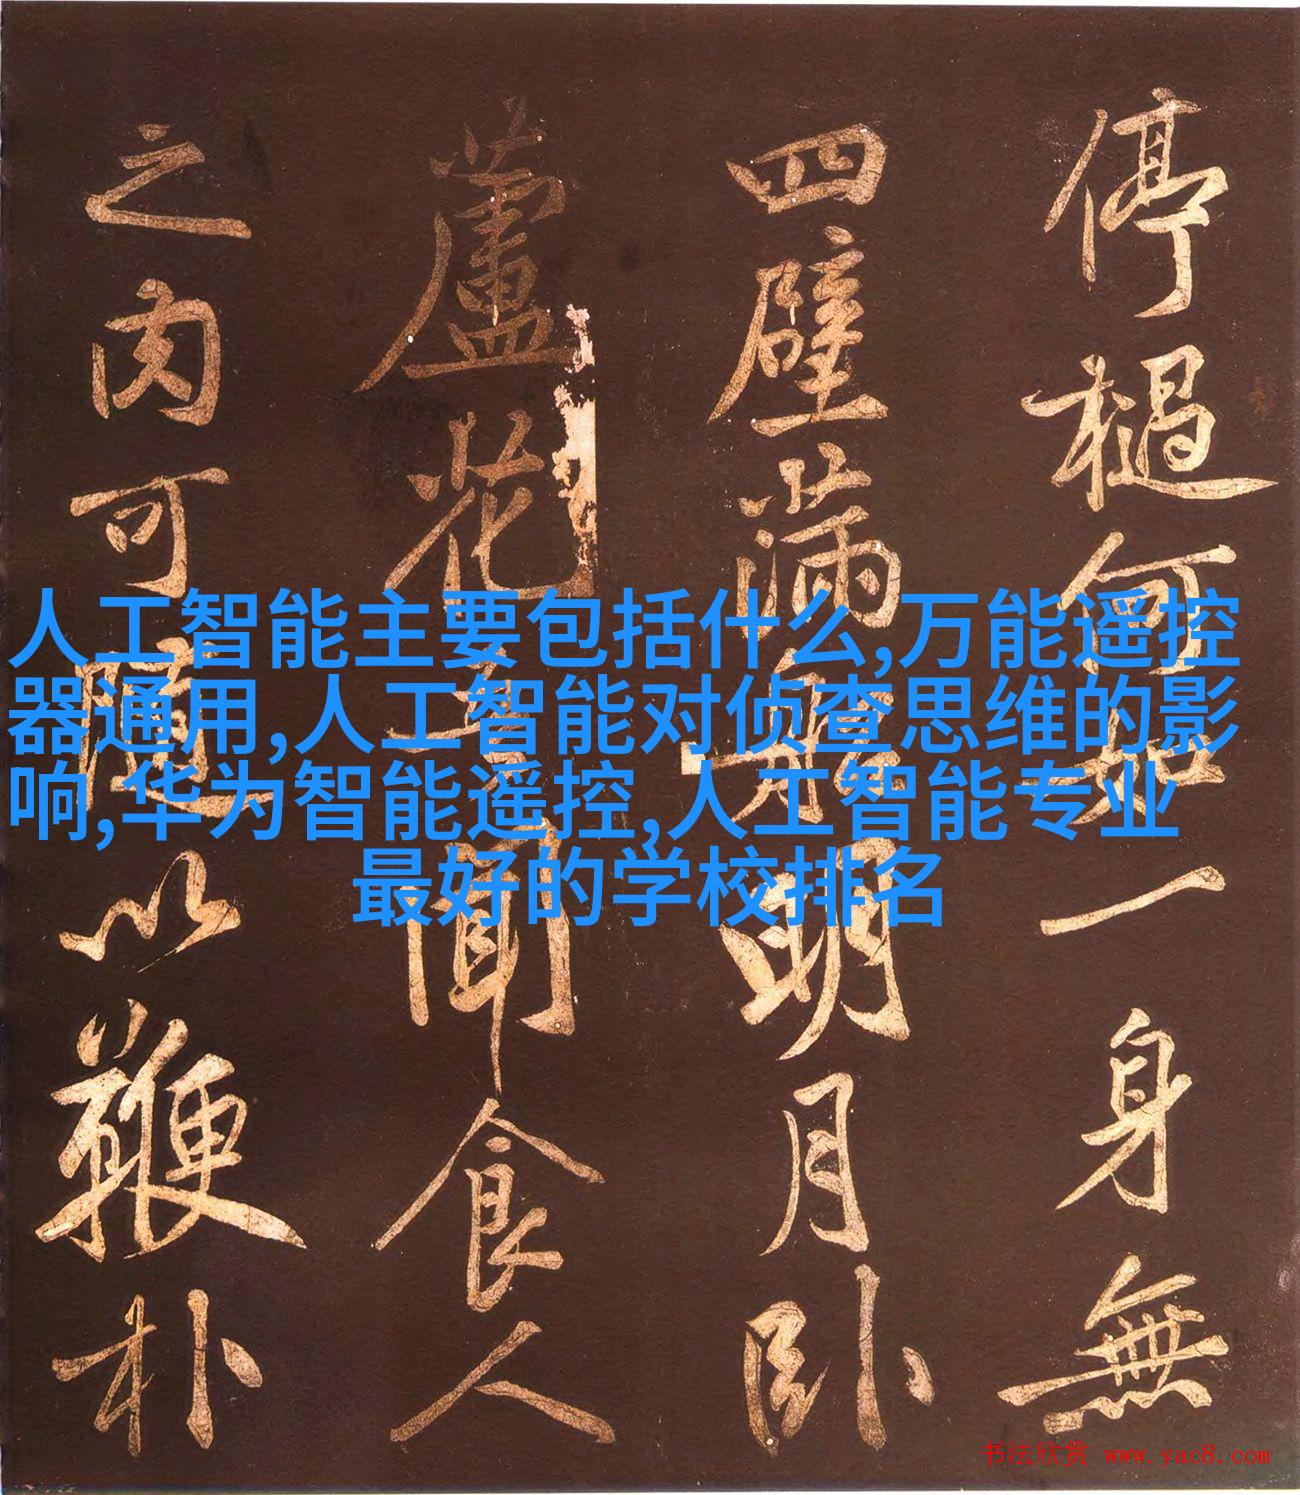 人工智能主要包括什么,万能遥控
器通用,人工智能对侦查思维的影
响,华为智能遥控,人工智能专业
最好的学校排名
停檛何如一身無
四壁滿船明月卧
蘆花聞食人
之肉可隨以鞭朴
书法欣赏 www.yac8.com